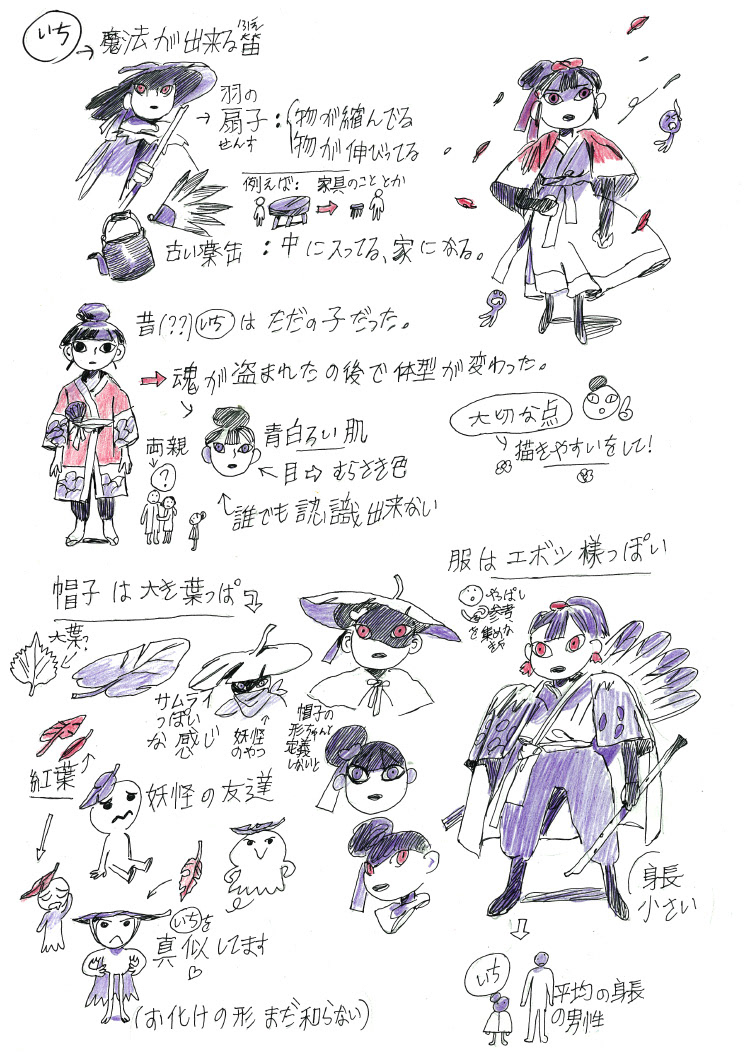 いち
→魔法が出来る笛
ふえ
羽の
→扇子：
せんす
物が縮んでる
物が伸びってる
例えば： 家具のこととか
古い薬缶：中に入ってる、家になる。
昔(??)いちはただの子だった。
→魂が盗まれたの後で体型が変わった。
大切な点
→描きやすいをして！
両親
?
青白ろい肌
←目⇨むらさき色
誰でも認識出来ない
服はエボシ様っぽい
やっぱし
参考
を集めな
きゃ
帽子は大き葉っぱ
大葉?
サムライ
っぽい
な感じ
妖怪
のやつ
帽子の
形ちゃんと
定義
しないと
紅葉
妖怪の友達
いちを
真似してます
(お化けの形まだ知らない)
身長
小さい
いち
平均の身長
の男性